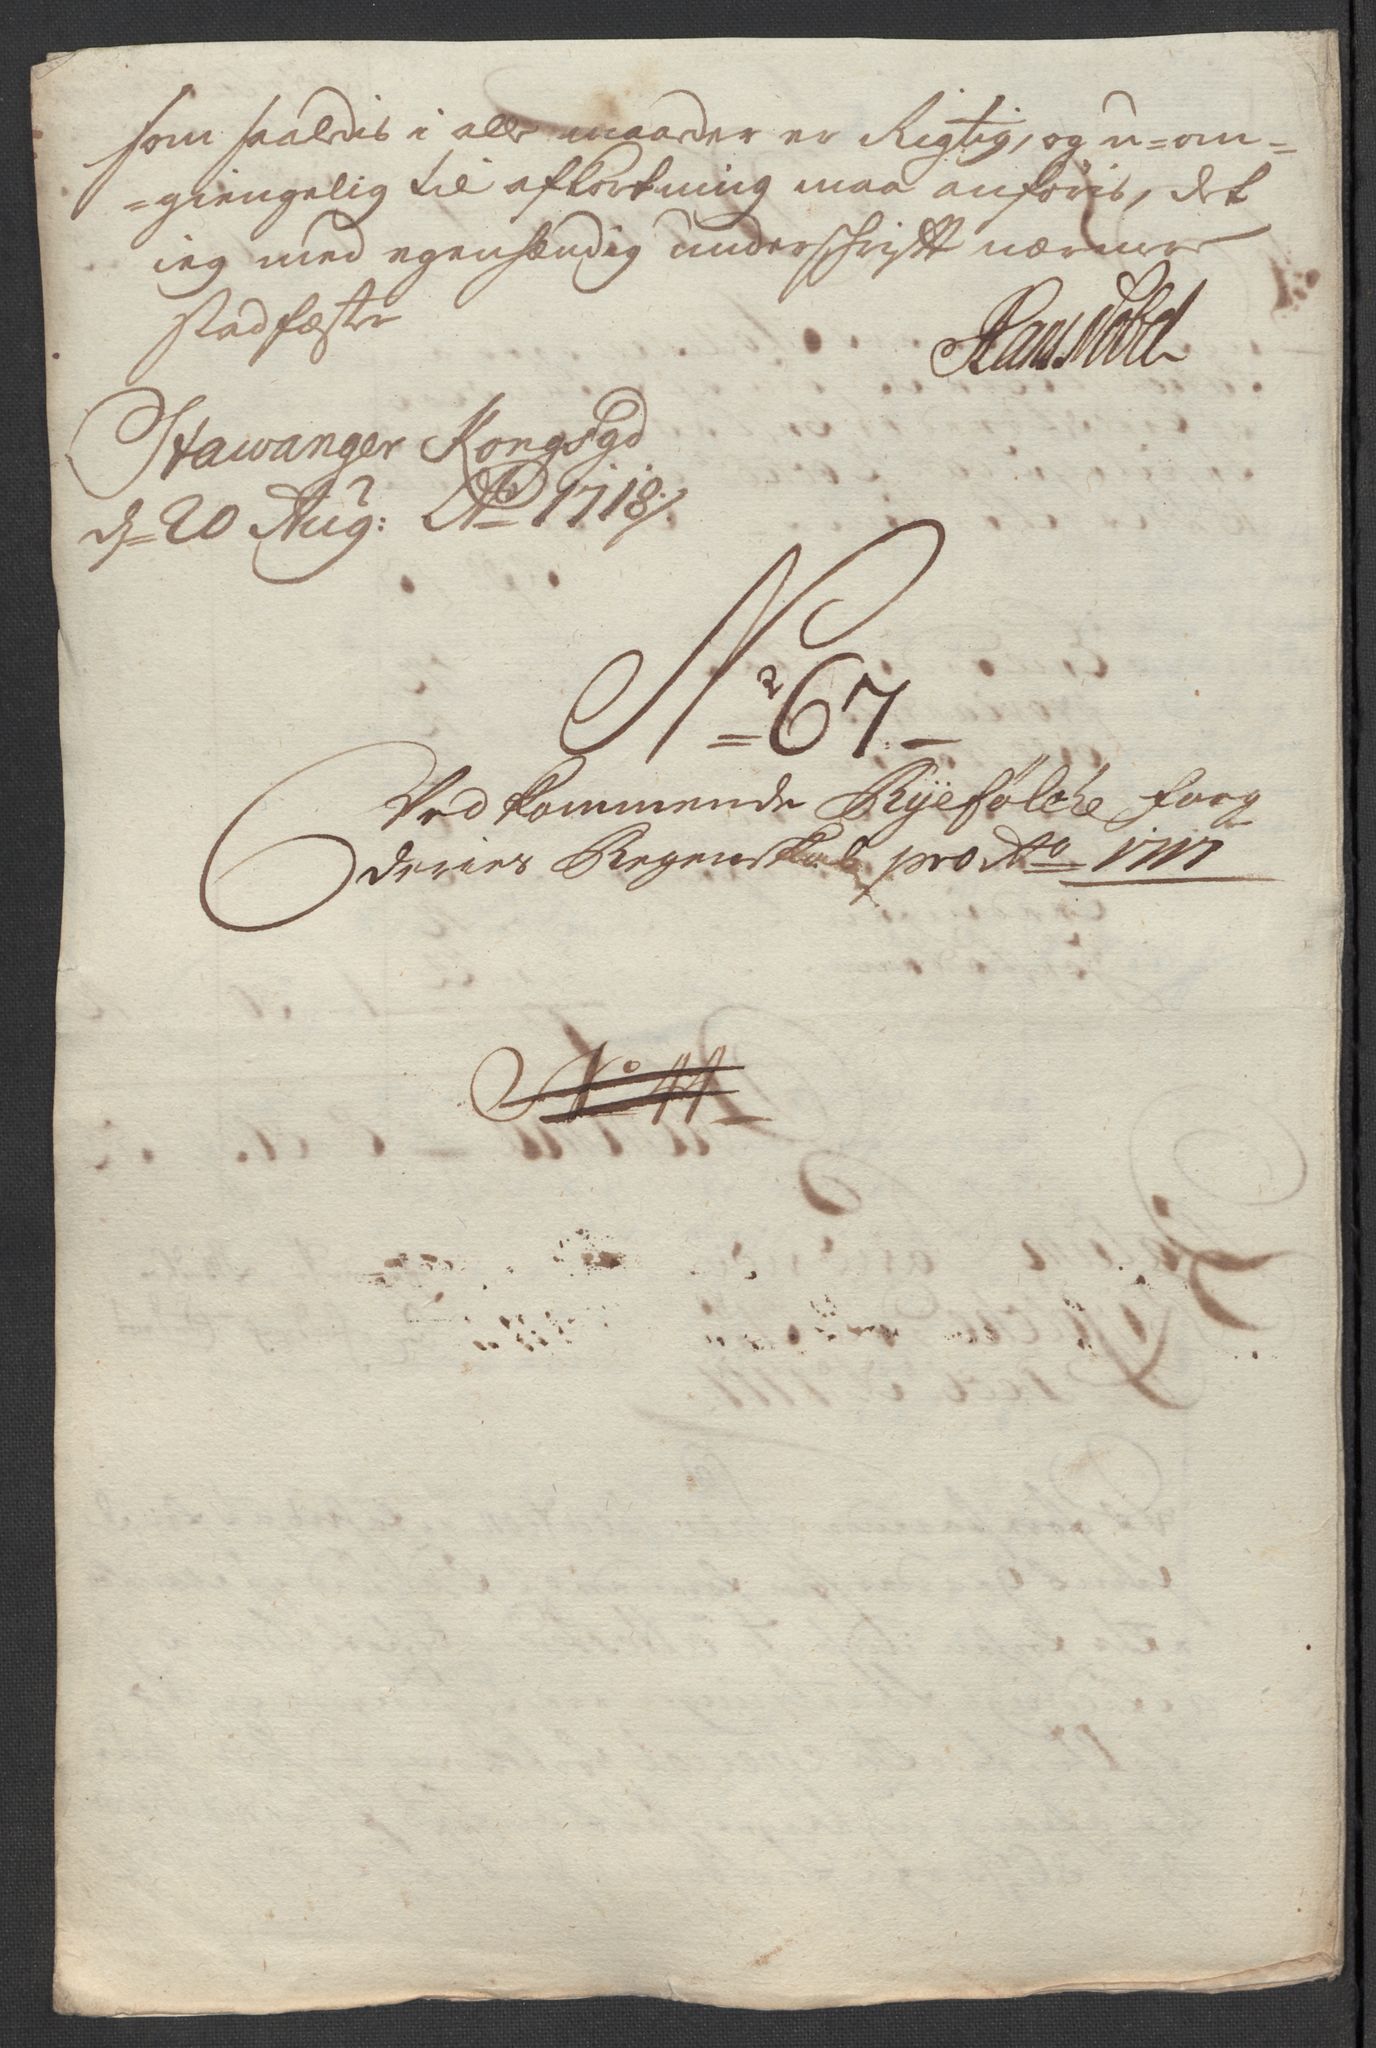 som saaledis i alle maader er Rigtig, og u=om=
=giengelig til afkortning maa anføris, det
ieg med egenhændig underschrifft nærmere
stadfæster
Hans Nobel
Stawanger Kongsgd
d= 20 Aug: Ao 1718
No 67
Vedkommende Ryefølche fog
deries Regenskab pro Ao 1717
No 44